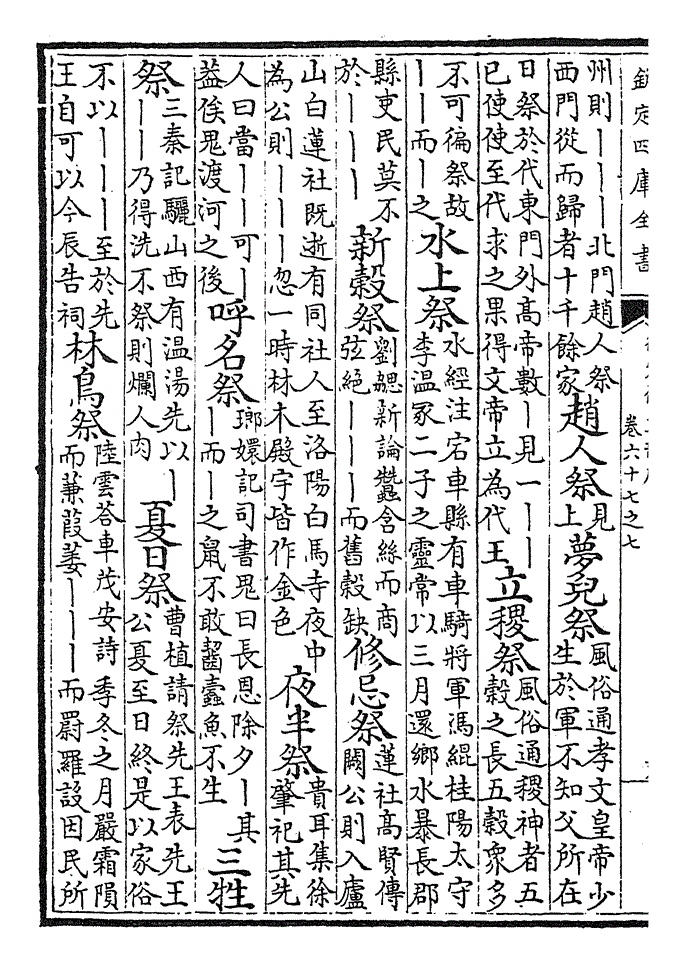 欽定四庫全書
卷六十七之七
州則丨丨丨北門趙人祭
西門從而歸者十千餘家
趙人祭
見
上
夢兒祭
風俗通孝文皇帝少
生於軍不知父所在
日祭於代東門外高帝數丨見一丨丨
已使使至代求之果得文帝立為代王
立稷祭
風俗通稷神者五
穀之長五穀衆多
不可徧祭故
丨丨而丨之
水上祭
水經注宕車縣有車騎將軍馮緄桂陽太守
李溫冢二子之靈常以三月還鄉水暴長郡
縣吏民莫不
於丨丨丨
新穀祭
劉勰新論蠶含絲而商
弦絕丨丨丨而舊穀缺
修忌祭
蓮社高賢傳
闕公則入廬
山白蓮社既逝有同社人至洛陽白馬寺夜中
為公則丨丨丨忽一時林木殿宇皆作金色
夜半祭
貴耳集徐
肇祀其先
人曰當丨丨可丨
葢俟鬼渡河之後
呼名祭
瑯嬛記司書鬼曰長恩除夕丨其
丨而丨之鼠不敢齧蠹魚不生
三牲
祭
三秦記驪山西有温湯先以丨
丨丨乃得洗不祭則爛人肉
夏日祭
曹植請祭先王表先王
公夏至日終是以家俗
不以丨丨丨至於先
王自可以今辰告祠
林鳥祭
陸雲荅車茂安詩季冬之月嚴霜隕
而蒹葭萎丨丨丨而罻羅設因民所